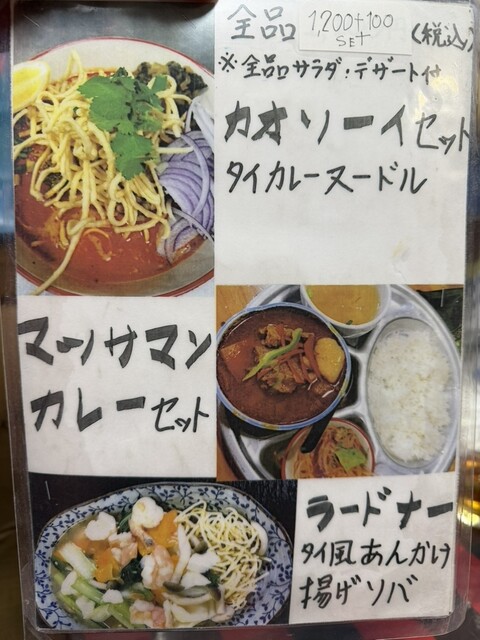 全品 1,200+100 (税込)
SET
※全品サラダ・デザート付
カオソーイセット
タイカレーヌードル
マッサマン
カレーセット
ラードナー
タイ風あんかけ
揚げソバ